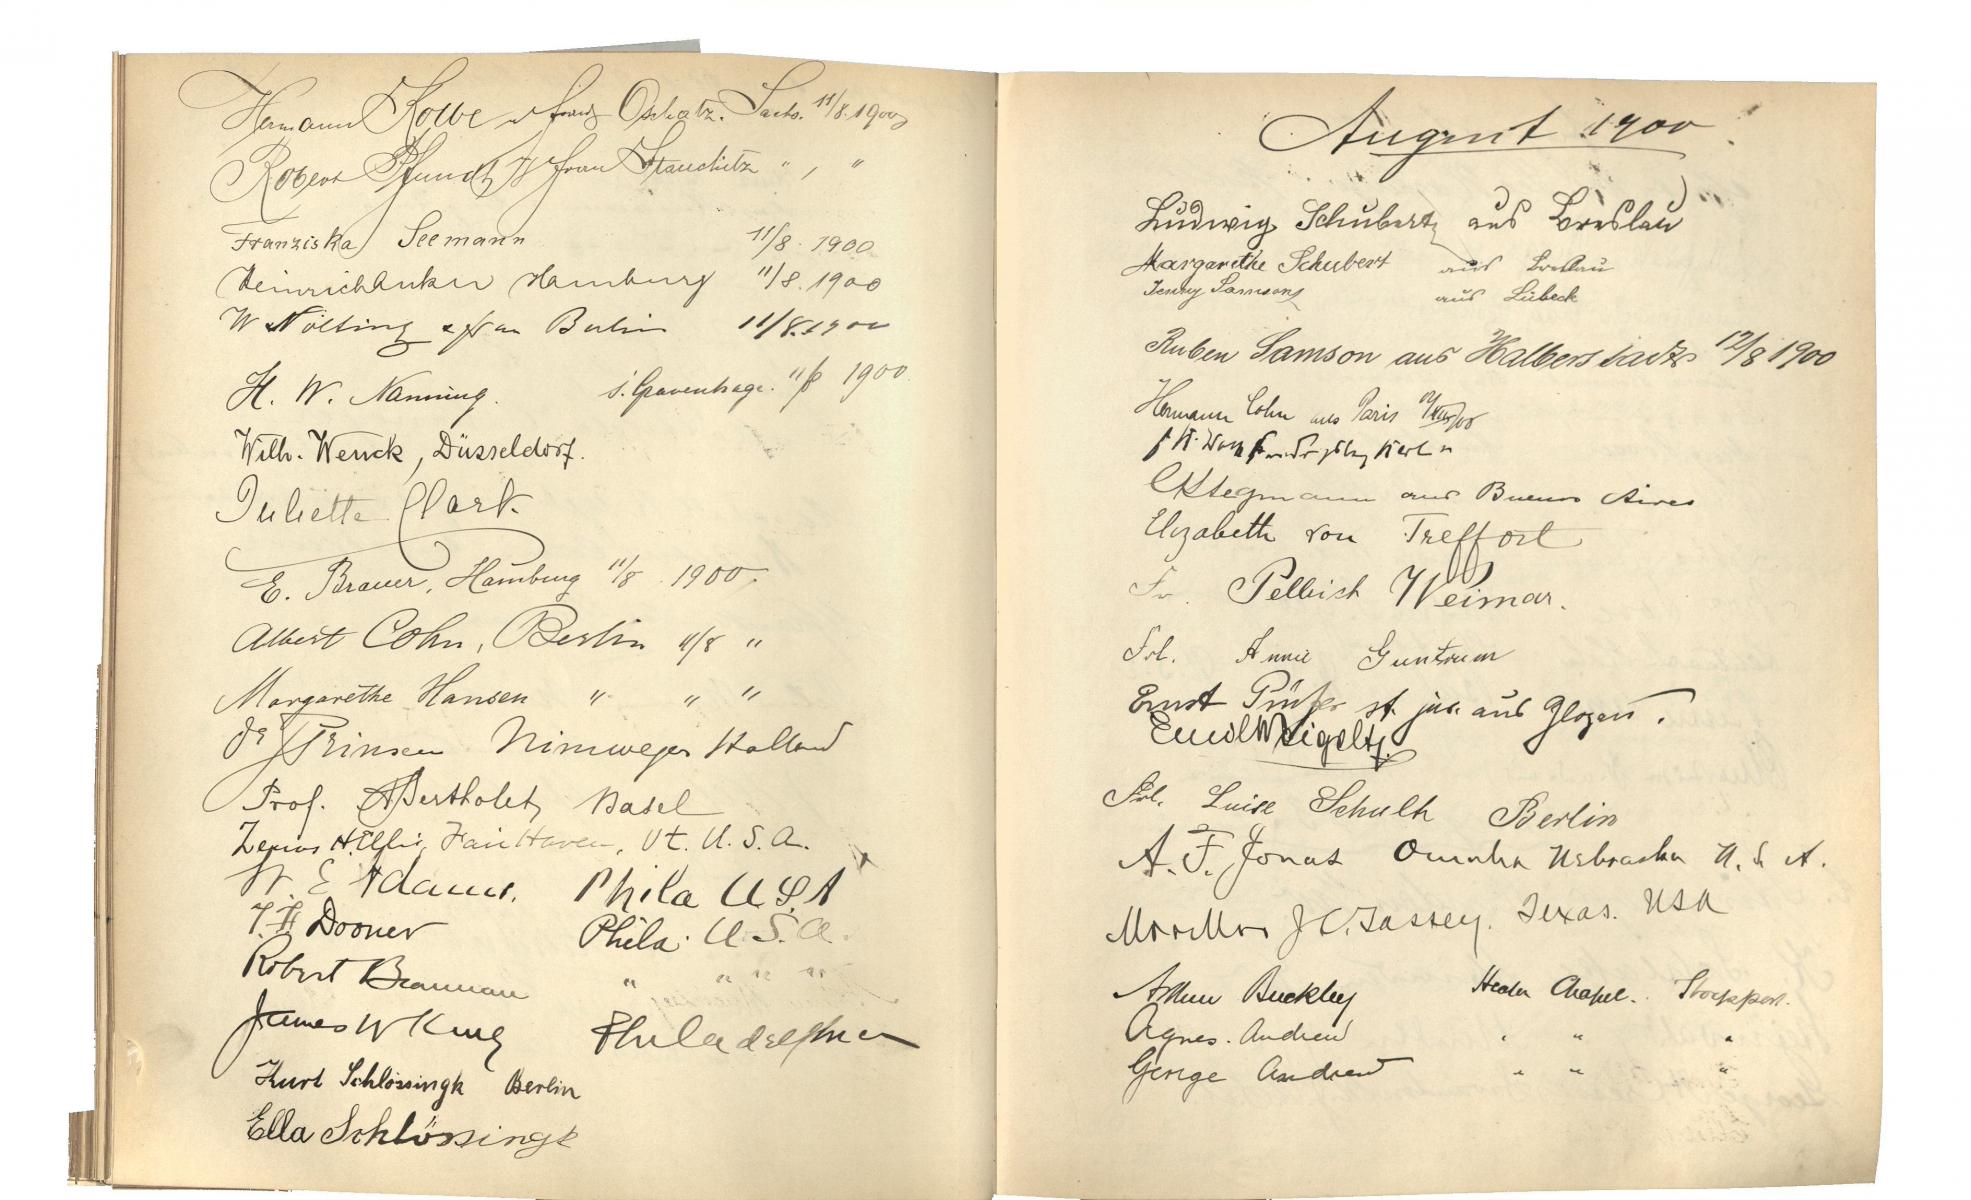 Hermann Kolbe u. Frau Oschatz. Sachs. 11/8.1900
Robert Pfundt u Frau Stauchitz " , "
Franziska Seemann 11/8. 1900
Heinrich Anker Hamburg 11/8.1900
W Nölting & Frau Berlin 11/8.1900
H. W. Nanning. s'Gravenhage. 11/8 1900
Wilh. Wenck, Düsseldorf.
Juliette Clark.
E. Brauer, Hamburg 11/8. 1900.
Albert Cohn, Berlin 11/8 "
Margarethe Hansen " " "
Dr J Prinsen Nimwegen Holland
Prof. A Bertholet, Basel
H. Ellis, Fair Haven, Vt. U. S. A.
W. E Adams. Phila U S A
Dooner Phila. U. S. A.
Robert " " " "
James W King Philadelphia
Kurt Schlössingk Berlin
Ella Schlössingk
August 1900
Ludwig Schubert, aus Breslau
Margarethe Schubert aus Breslau
Jenny Samson aus Lübeck
Ruben Samson aus Halberstadt 12/8 1900
Hermann Cohn aus Paris
Stegmann aus Buenos Aires
Elizabeth von Treffort
Fr. Weimar.
Frl. Annie Guntrum
Ernst st. jur. aus Glogau.
Emil
Frl. Luise Schulth Berlin
A. F. Jonas Omaha Nebraska U. S. A.
J C. Tassey. Texas. USA
Buckley Chapel. Stockport.
Agnes. Andrew " " "
George Andrew " " "